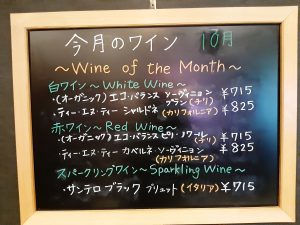 今月のワイン 10月
~Wine of the Month~
白ワイン~White Wine~
・(オーガニック)エコ・バランス ソーヴィニョン
ブラン(チリ) ¥715
・ティー・エヌ・ティー シャルドネ(カリフォルニア) ¥825
赤ワイン~Red Wine~
・(オーガニック)エコ・バランス ピノ・ノワール(チリ) ¥715
・ティー・エヌ・ティー カベルネ・ソーヴィニョン ¥825
(カリフォルニア)
スパークリングワイン~Sparkling Wine~
・サンテロ ブラック ブリュット(イタリア) ¥715